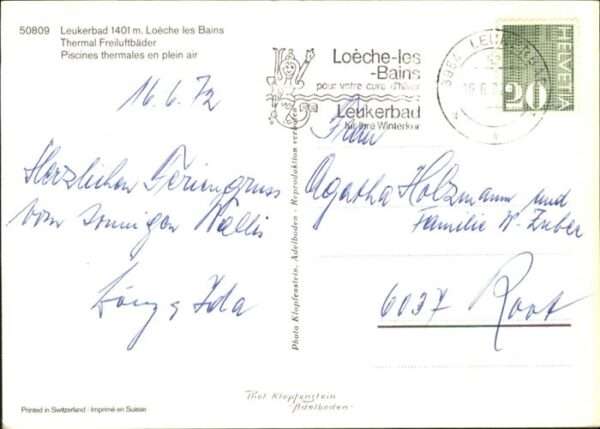 50809 Leukerbad 1401 m. Loèche les Bains
Thermal Freiluftbäder
Piscines thermales en plein air
16.6.72
Herzlichen Feriengruss
vom sonnigen Wallis
Ida
Loèche-les
-Bains
pour votre cure d'hiver
Leukerbad
für Ihre Winterkur
3954 LEUKERBAD
HELVETIA
20
Frau
Agatha Holzmann und
Familie W. Zuber
6037 Root
Photo Klopfenstein, Adelboden - Reproduktion verboten
Phot Klopfenstein
Adelboden
Printed in Switzerland · Imprimé en Suisse